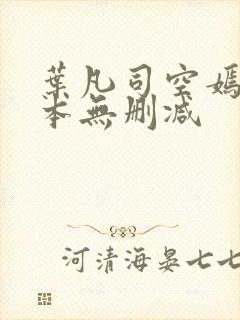 葉凡司空嫣
本無刪減
河清海晏七七